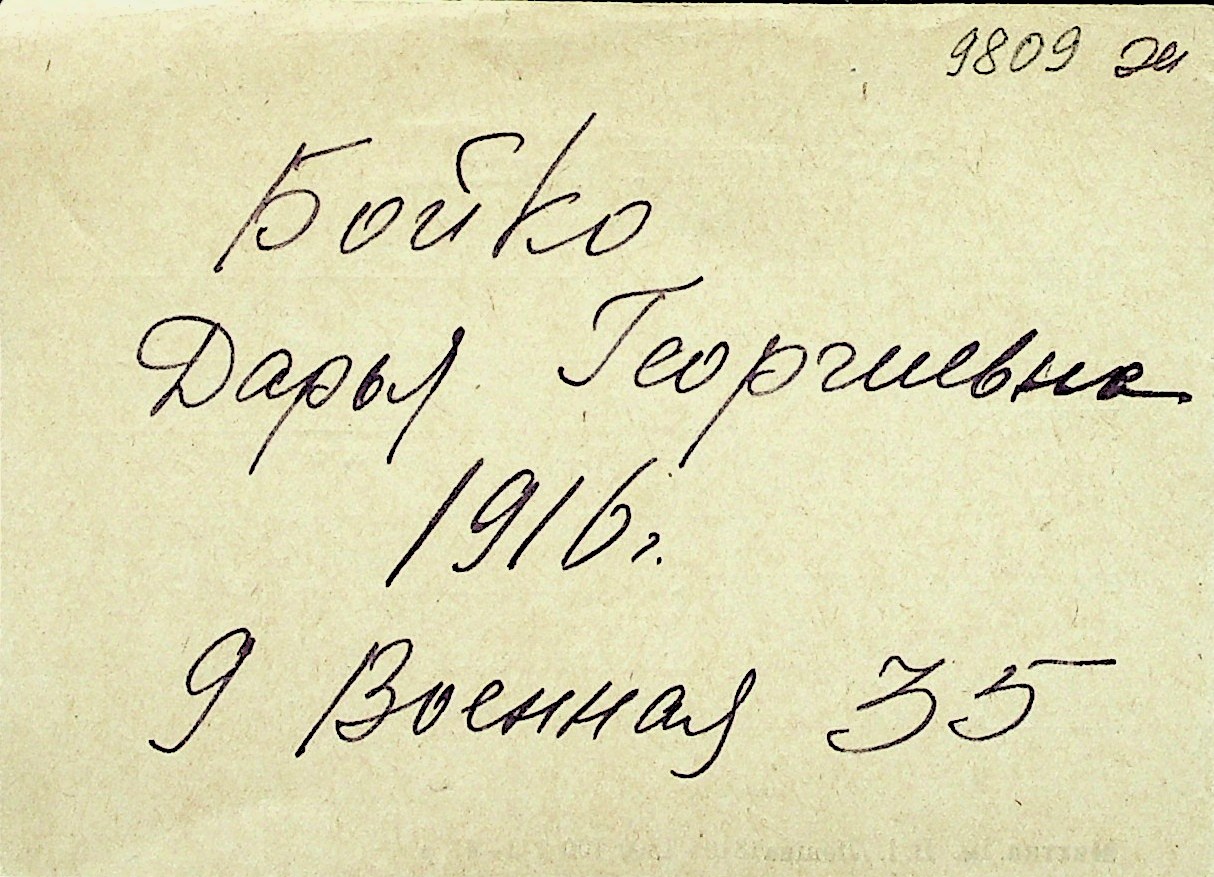 9809
Бойко
Дарья Георгиевна
1916г.
9 Военная 35